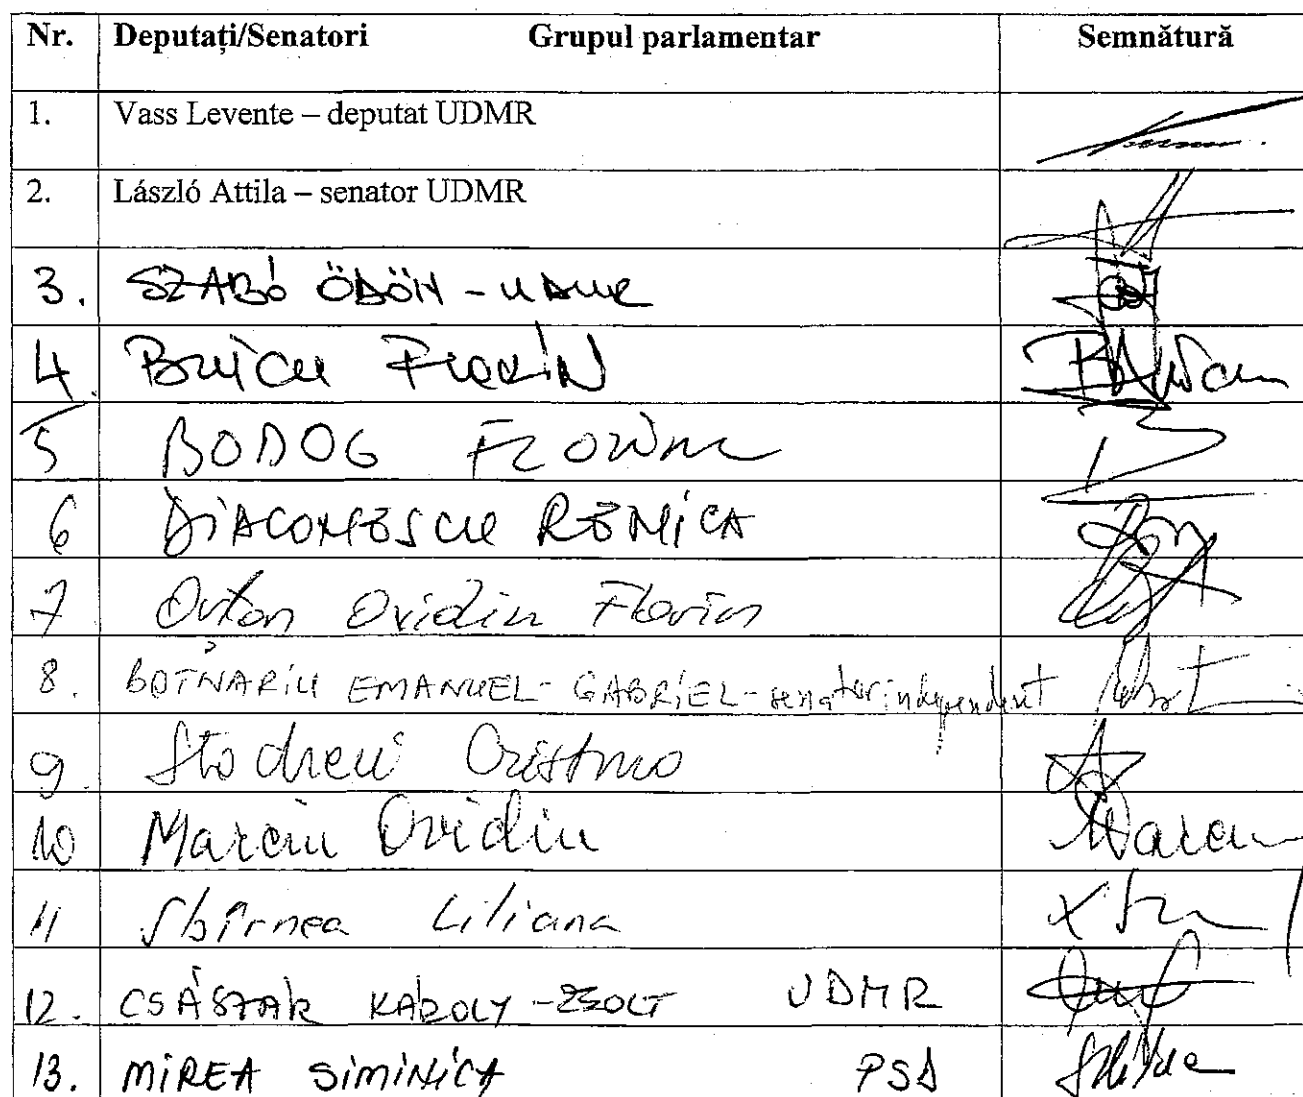 Nr. Deputați/Senatori Grupul parlamentar Semnătură
1. Vass Levente – deputat UDMR
2. László Attila – senator UDMR
3. SZABÓ ÖDÖN - UDMR
4. Buicu Florin
5 BODOG Florian
6 DIACONESCU RENICA
7 Ortan Ovidiu Florin
8. BOTNARIU EMANUEL - GABRIEL - senator independent
9.
10 Marciu Ovidiu Marciu
11 Sbîrnea Liliana
12. CSÁSZÁR KÁROLY - ZSOLT UDMR
13. MIREA SIMINICA PSD